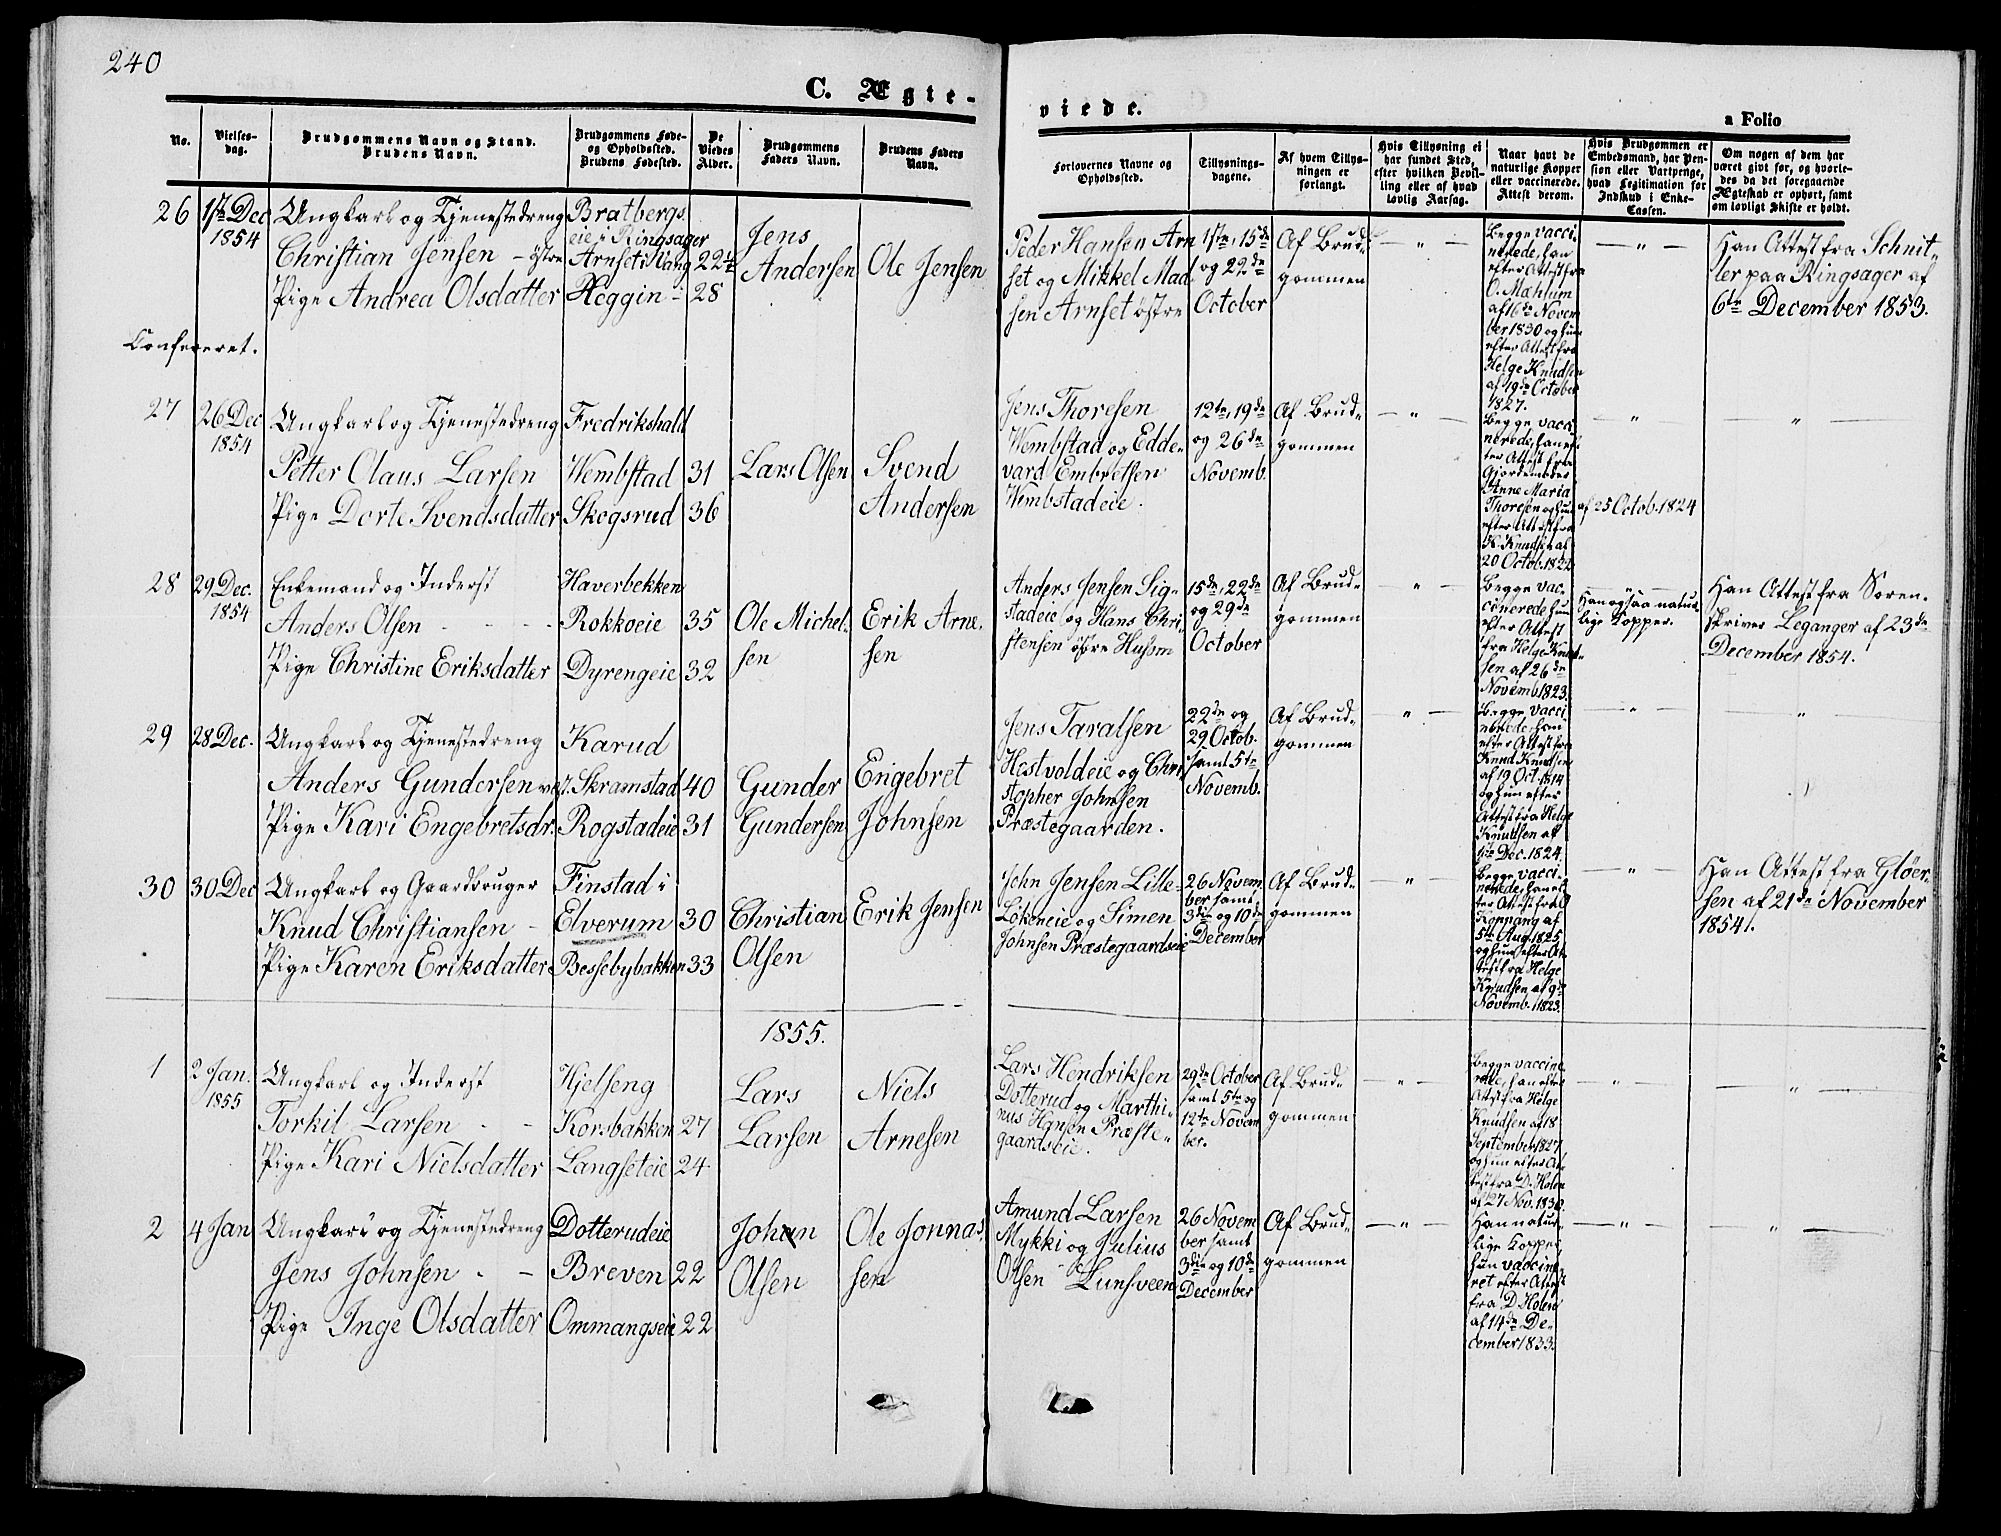 240
C. Ægte-
viede.
a Folio
No.
Vielses-
dag.
Brudgommens Navn og Stand.
Brudens Navn.
Brudgommens Føde-
og Opholdssted.
Brudens Fødested.
De
Viedes
Alder.
Brudgommens
Faders Navn.
Brudens Faders
Navn.
Forlovernes Navne og
Opholdssted.
Tillysnings-
dagene.
Af hvem Tillys-
ningen er
forlangt.
Hvis Tillysning ei
har fundet Sted,
efter hvilken Bevil-
ling eller af hvad
lovlig Aarsag.
Naar havt de
naturlige Kopper
eller vaccinerede.
Attest derom.
Hvis Brudgommen er
Embedsmand, har Pen-
sion eller Vartpenge,
hvad Legitimation for
Indskud i Enke-
Cassen.
Om nogen af dem har
været gift før, og hvorle-
des da det foregaaende
Ægteskab er ophørt, samt
om lovligt Skifte er holdt.
26
1ste Dec
1854
Ungkarl og Tjenestedreng
Christian Jensen - østre
Pige Andrea Olsdatter
Bratbergs
eie i Ringsager
Arnset i Vang
Heggin -
22½
28
Jens
Andersen
Ole Jensen
Peder Hansen Arn
set og Mikkel Mad
sen Arnset østre
1ste, 15de
og 22de
October
Af Brud-
gommen
— " —
Begge vacci-
nerede, han
efter Attest fra
O. Mæhlum
af 16de Novem
ber 1830 og hun
efter Attest fra
Helge Knudsen
af 19de October
1827.
— " —
Han Attest fra Schnit-
ler paa Ringsager af
6te December 1853.
Confereret.
27
26 Dec
1854
Ungkarl og Tjenestedreng
Petter Claus Larsen
Pige Dorte Svendsdatter
Fredrikshald
Wembstad
Skogsrud
31
36
Lars Olsen
Svend
Andersen
Jens Thoresen
Wembstad og Edde-
vard Embretsen
Wembstadeie.
12te, 19de
og 26de
Novemb.
Af Brud-
gommen
— " —
Begge vacci-
nerede, han ef-
ter Attest fra
Gjordemoder
Anne Maria
Thoresen og hun
efter Attest fra
H. Knudsen af
20 Octob. 1822
— " —
af 25 Octob. 1824
— " —
28
29 Dec.
1854
Enkemand og Inderst
Anders Olsen - - - -
Pige Christine Eriksdatter
Haverbekken
Rokkoeie
Dyrengeie
35
32
Ole Michel-
sen
Erik Arne-
sen
Anders Jensen Sig-
stadeie og Hans Chri-
stensen østre Husom
15de, 22de
og 29de
October
Af Brud-
gommen
" —
Begge vac-
cinerede hun
efter Attest
fra Helge Knud-
sen af 26de
Novemb 1823.
— " —
Han ogsaa natur-
lige Kopper.
Han Attest fra Soren-
skriver Leganger af 23de
December 1854.
29
28 Dec.
Ungkarl og Tjenestedreng
Anders Gundersen
Pige Kari Engebretsdr.
Karud
Skramstad
Rogstadeie
40
31
Gunder
Gundersen
Engebret
Johnsen
Jens Taralsen
Hestvoldeie og Chri
stopher Johnsen
Præstegaarden.
22de og
29 Octob.
samt 5te
Novemb.
Af Brud-
gommen
" —
Begge vacci-
nerede, han
efter Attest fra
Knud Knudsen
af 19 Oct. 1814
og hun efter
Attest fra Helge
Knudsen af
1ste Dec. 1824.
— " —
"
30
30 Dec
Ungkarl og Gaardbruger
Knud Christiansen -
Pige Karen Eriksdatter
Finstad i
Elverum
Bessebybakken
30
33
Christian
Olsen
Erik Jensen
John Jensen Lille-
Løkeneie og Simen
Johnsen Præstegaardseie
26 Novem
ber samt
3die og 10de
December
Af Brud-
gommen
— " —
Begge vacci-
nerede, han ef-
ter Attest fra
Koppang af
5te Aug. 1825
og hun efter At-
test fra Helge
Knudsen af 9de
Novemb. 1823.
— " —
Han Attest fra Glöer-
sen af 21de November
1854.
1855.
1
2 Jan.
1855
Ungkarl og Inderst
Torkil Larsen - -
Pige Kari Nielsdatter
Hjelseng
Korsbakken
Langseteie
27
24
Lars
Larsen
Niels
Arnesen
Lars Hendriksen
Dotterud og Marthi-
nus Hansen Præste-
gaardseie.
29de October
samt 5te og
12te Novem
ber.
Af Brud-
gommen
— " —
Begge vaccine
rede, han efter
Attest fra Helge
Knudsen af 18
September 1827
og hun efter At-
test fra D. Holen
af 27 Nov. 1830.
— " —
— " —
2
4 Jan
Ungkarl og Tjenestedreng
Jens Johnsen - -
Pige Inge Olsdatter
Dotterudeie
Breven
Ommangseie
22
22
Johan
Olsen
Ole Jonna-
sen
Amund Larsen
Mykki og Julius
Olsen Lunsveen
26 Novem
ber samt
3die og 10de
December
Af Brud-
gommen
— " —
Han natur-
lige Kopper,
hun vaccine-
ret efter Attest
fra D. Holen
af 14de De-
cember 1833.
— " —
" —